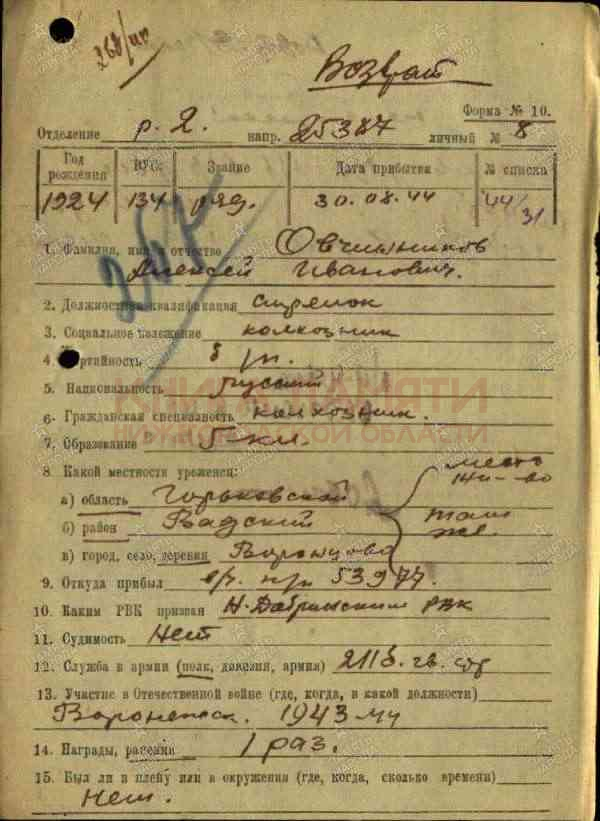 Возврат
Форма № 10.
Отделение р. 2. напр. 25387 личный № 8
Год рождения ВУС Звание Дата прибытия № списка
1924 134 ряд. 30.08.44 44/31
1. Фамилия, имя, отчество Овчинников
Алексей Иванович.
2. Должностная квалификация стрелок
3. Социальное положение колхозник
4. Партийность б/п.
5. Национальность русский
КНИГА ПАМЯТИ
6. Гражданская специальность колхозник.
ОБЛАСТИ
7. Образование 5 кл.
8. Какой местности уроженец: место
жи-во
а) область Горьковской
б) район Вадский там
же.
в) город, село, деревня Воронцово
9. Откуда прибыл в/ч. п/п 53977.
10. Каким РВК призван РВК
11. Судимость Нет
12. Служба в армии (полк, дивизия, армия) гв. стр
13. Участие в Отечественной войне (где, когда, в какой должности)
Воронежск. 1943
14. Награды, ранения 1 раз.
15. Был ли в плену или в окружения (где, когда, сколько времени)
Нет.